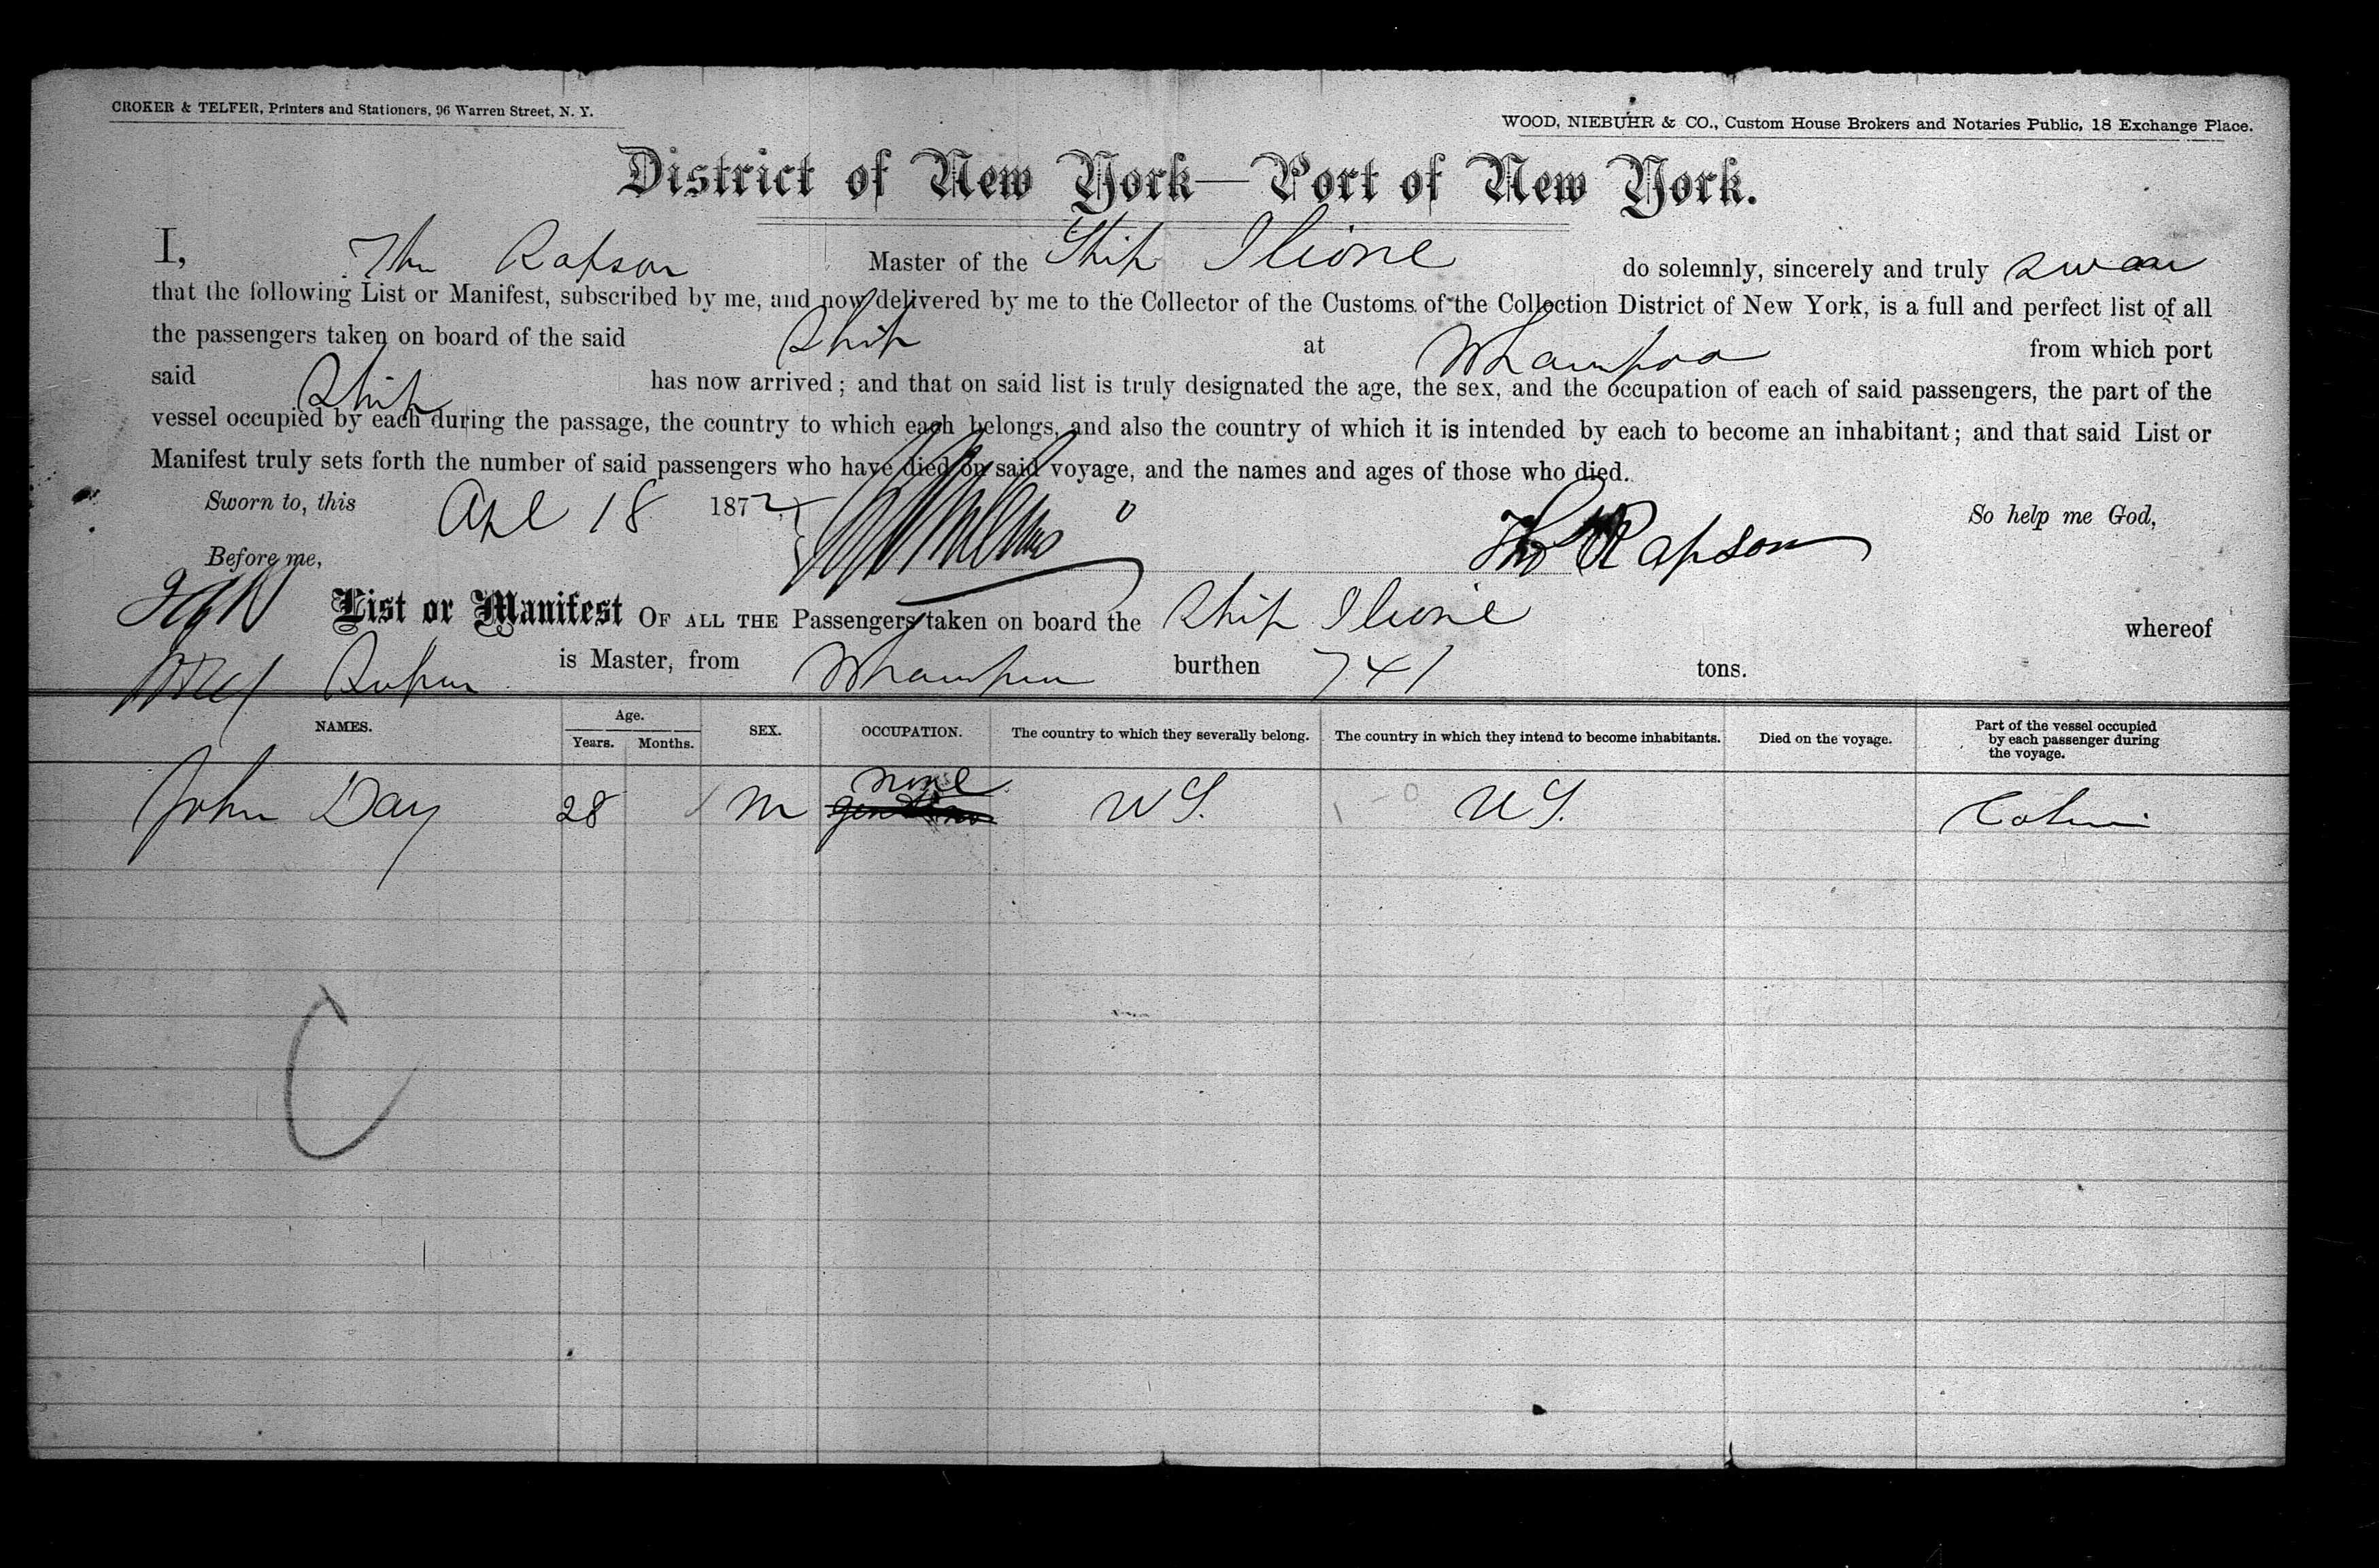 CROKER & TELFER, Printers and Stationers, 96 Warren Street, N. Y.
WOOD, NIEBUHR & CO., Custom House Brokers and Notaries Public, 18 Exchange Place.
District of New York—Port of New York.
I, Thos Rapson Master of the Ship Ilione do solemnly, sincerely and truly swear
that the following List or Manifest, subscribed by me, and now delivered by me to the Collector of the Customs of the Collection District of New York, is a full and perfect list of all
the passengers taken on board of the said Ship at Whampoa from which port
said Ship has now arrived; and that on said list is truly designated the age, the sex, and the occupation of each of said passengers, the part of the
vessel occupied by each during the passage, the country to which each belongs, and also the country of which it is intended by each to become an inhabitant; and that said List or
Manifest truly sets forth the number of said passengers who have died on said voyage, and the names and ages of those who died.
Sworn to, this Apl 18 1872, So help me God,
Before me, Thos Rapson
List or Manifest OF ALL THE Passengers taken on board the Ship Ilione whereof
Rapson is Master, from Whampoa burthen 741 tons.
NAMES. Age. Years. Months. SEX. OCCUPATION. The country to which they severally belong. The country in which they intend to become inhabitants. Died on the voyage. Part of the vessel occupied by each passenger during the voyage.
none
John Day 28 M U S. U S. Cabin
C